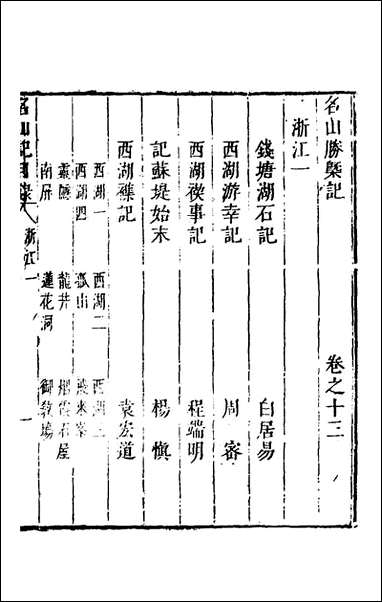 名山勝槩記　卷之十三
浙江一
錢塘湖石記　白居易
西湖游幸記　周密
西湖禊事記　程端明
記蘇堤始末　楊慎
西湖雜記　袁宏道
西湖一　西湖二　西湖三
西湖四　孤山　飛來峯
靈隱　龍井　烟霞石屋
南屏　蓮花洞　御教塲
名山記目錄　浙江一　一